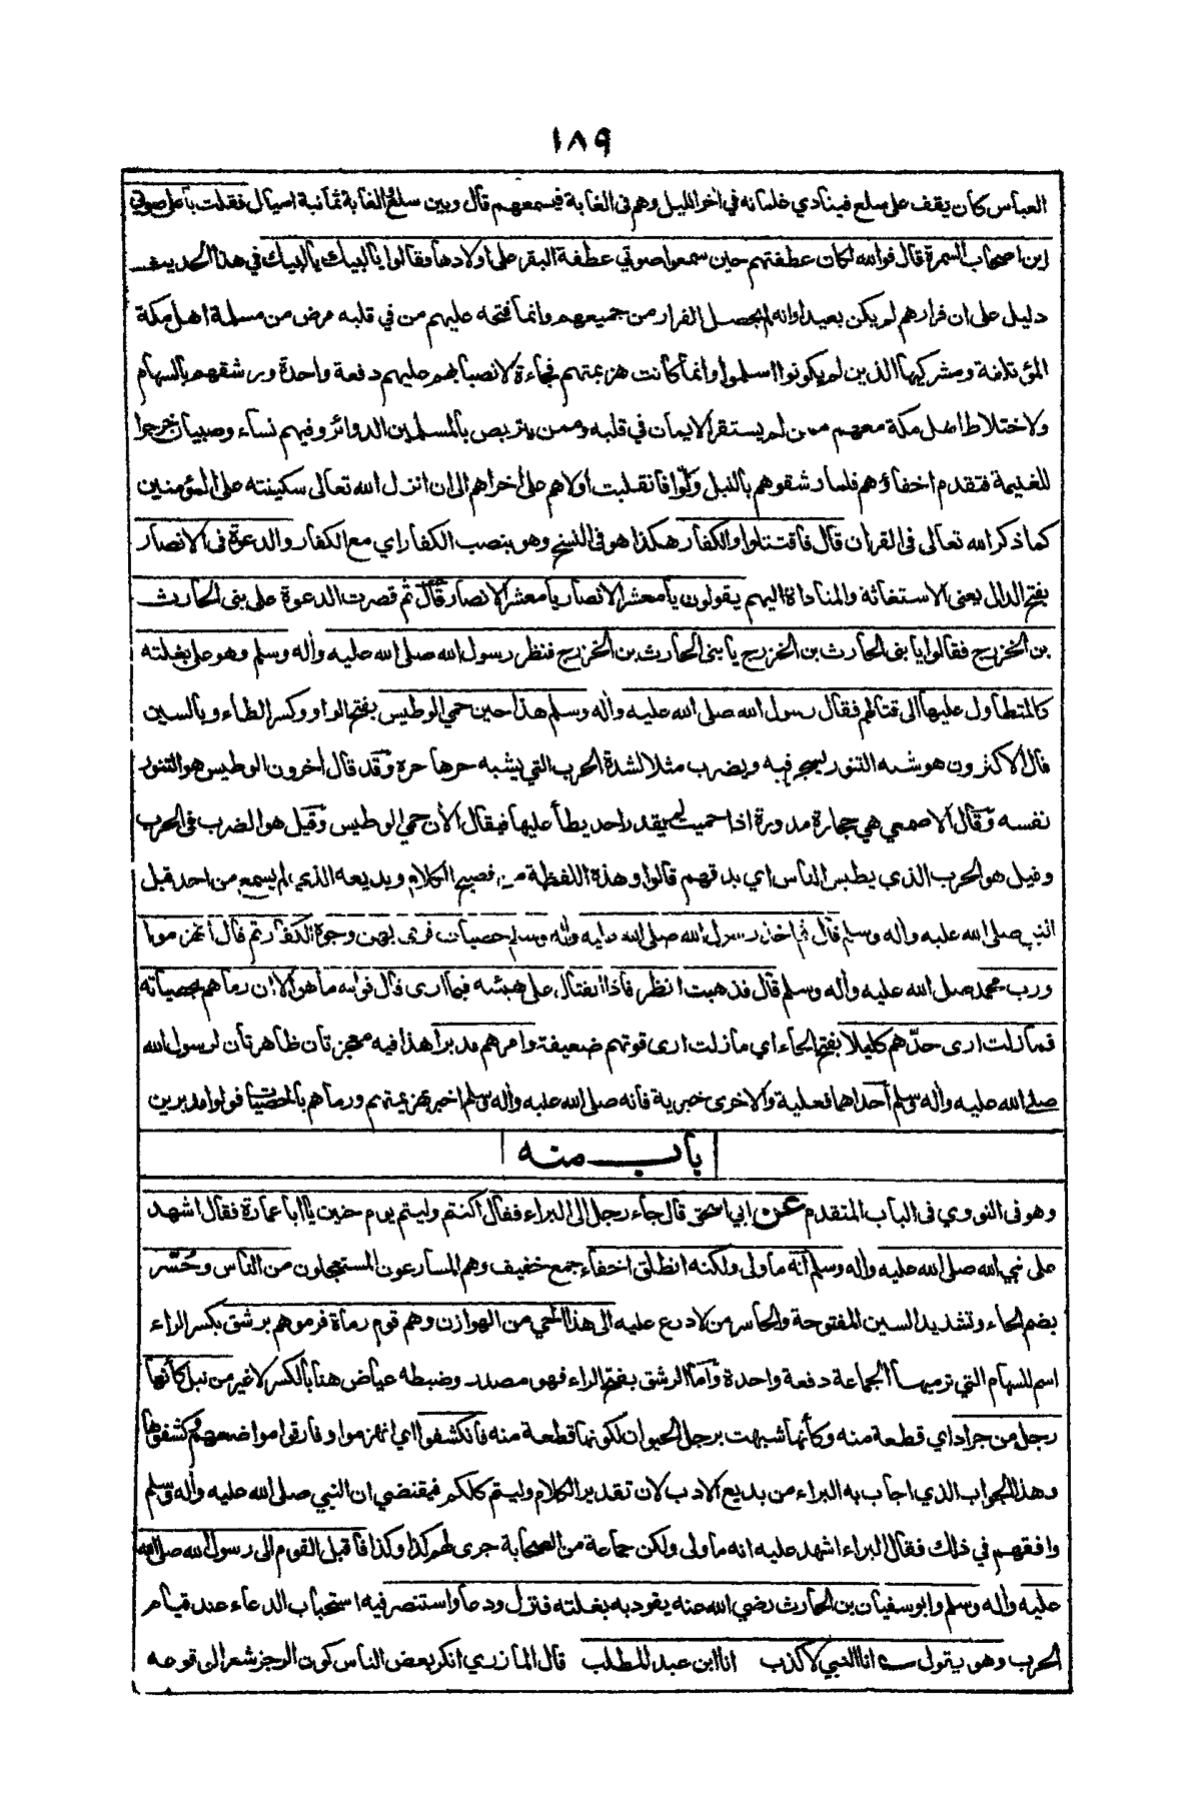 ١٨٩
العباس كان يقف على سلع فينادي غلمانه في اٰخر الليل وهم فى الغابة فيسمعهم قال وبين سلع والغابة ثمانية اميال فقلت باعلى صوتي
اين اصحاب السمرة قال فوالله لكان عطفتهم حين سمعوا صوتي عطفة البقر على اولادها وقالوا يا لبيك يا لبيك في هذا الحديث
دليل على ان فرارهم لم يكن بعيدا وانه لم يحصل الفرار من جميعهم وانما فتحه عليهم من في قلبه مرض من مسلمة اهل مكة
المؤتلفة ومشركيها الذين لم يكونوا اسلموا وانما كانت هزيمتهم فجاءة لانصبابهم عليهم دفعة واحدة ورشقهم بالسهام
ولاختلاط اهل مكة معهم ممن لم يستقر الايمان في قلبه وممن يتربص بالمسلمين الدوائر وفيهم نساء وصبيان خرجوا
للغنيمة فتقدم اخفاؤهم فلما رشقوهم بالنبل ولّوا فانقلبت اولاهم على اخراهم الى ان انزل الله تعالى سكينته على المؤمنين
كما ذكر الله تعالى فى القران قال فاقتتلوا والكفار هكذا هو فى النسخ وهو بنصب الكفار اي مع الكفار والدعوة فى الانصار
بفتح الدال يعنى الاستغاثة والمناداة اليهم يقولون يا معشر الانصار يا معشر الانصار قال ثم قصرت الدعوة على بنى الحارث
بن الخزرج فقالوا يا بنى الحارث بن الخزرج يا بنى الحارث بن الخزرج فنظر رسول الله صلى الله عليه واٰله وسلم وهو على بغلته
كالمتطاول عليها الى قتالهم فقال رسول الله صلى الله عليه واٰله وسلم هذا حين حمي الوطيس بفتح الواو وكسر الطاء وبالسين
قال الاكثرون هو شبه التنور يسجر فيه ويضرب مثلا لشدة الحرب التي يشبه حرها حره وقد قال اٰخرون الوطيس هو التنور
نفسه وقال الاصمعي هي حجارة مدورة اذا حميت لم يقدر احد يطأ عليها فيقال الاٰن حمي الوطيس وقيل هو الضرب فى الحرب
وقيل هو الحرب الذي يطيس الناس اي يدقهم قالوا وهذه اللفظة من فصيح الكلام وبديعه الذي لم يسمع من احد قبل
النبي صلى الله عليه واٰله وسلم قال ثم اخذ رسول الله صلى الله عليه واٰله وسلم حصيات فرمى بهن وجوه الكفار ثم قال انهزموا
ورب محمد صلى الله عليه واٰله وسلم قال فذهبت انظر فاذا القتال على هيئته فيما ارى قال فوالله ما هو الا ان رماهم بحصياته
فما زلت ارى حدّهم كليلا بفتح الحاء اي ما زلت ارى قوتهم ضعيفة وامرهم مدبرا هذا فيه معجزتان ظاهرتان لرسول الله
صلى الله عليه واٰله وسلم احداهما فعلية والاخرى خبرية فانه صلى الله عليه واٰله وسلم اخبر بهزيمتهم ورماهم بالحصيات فولوا مدبرين
باب منه
وهو فى النووي فى الباب المتقدم عن ابي اسحٰق قال جاء رجل الى البراء فقال اكنتم وليتم يوم حنين يا ابا عمارة فقال اشهد
على نبي الله صلى الله عليه واٰله وسلم انه ما ولى ولكنه انطلق اخفاء جمع خفيف وهم المسارعون المستعجلون من الناس وحُسّر
بضم الحاء وتشديد السين المفتوحة والحاسر من لا درع عليه الى هذا الحي من الهوازن وهم قوم رماة فرموهم برشق بكسر الراء
اسم للسهام التي ترميها الجماعة دفعة واحدة واما الرشق بفتح الراء فهو مصدر وضبطه عياض هنا بالكسر لا غير من نبل كانها
رجل من جراد اي قطعة منه وكأنها شبهت برجل الحيوان لكونها قطعة منه فانكشفوا اي انهزموا وفارقوا مواضعهم وكشفوها
وهذا الجواب الذي اجاب به البراء من بديع الادب لان تقدير الكلام وليتم كلكم فيقتضي ان النبي صلى الله عليه واٰله وسلم
وافقهم في ذلك فقال البراء اشهد عليه انه ما ولى ولكن جماعة من الصحابة جرى لهم كذا وكذا فاقبل القوم الى رسول الله صلى الله
عليه واٰله وسلم وابو سفيان بن الحارث رضي الله عنه يقود به بغلته فنزل ودعا واستنصر فيه استحباب الدعاء عند قيام
الحرب وهو يقول ؎ انا النبي لا كذب انا ابن عبد المطلب قال المازري انكر بعض الناس كون الرجز شعرا لوقوعه